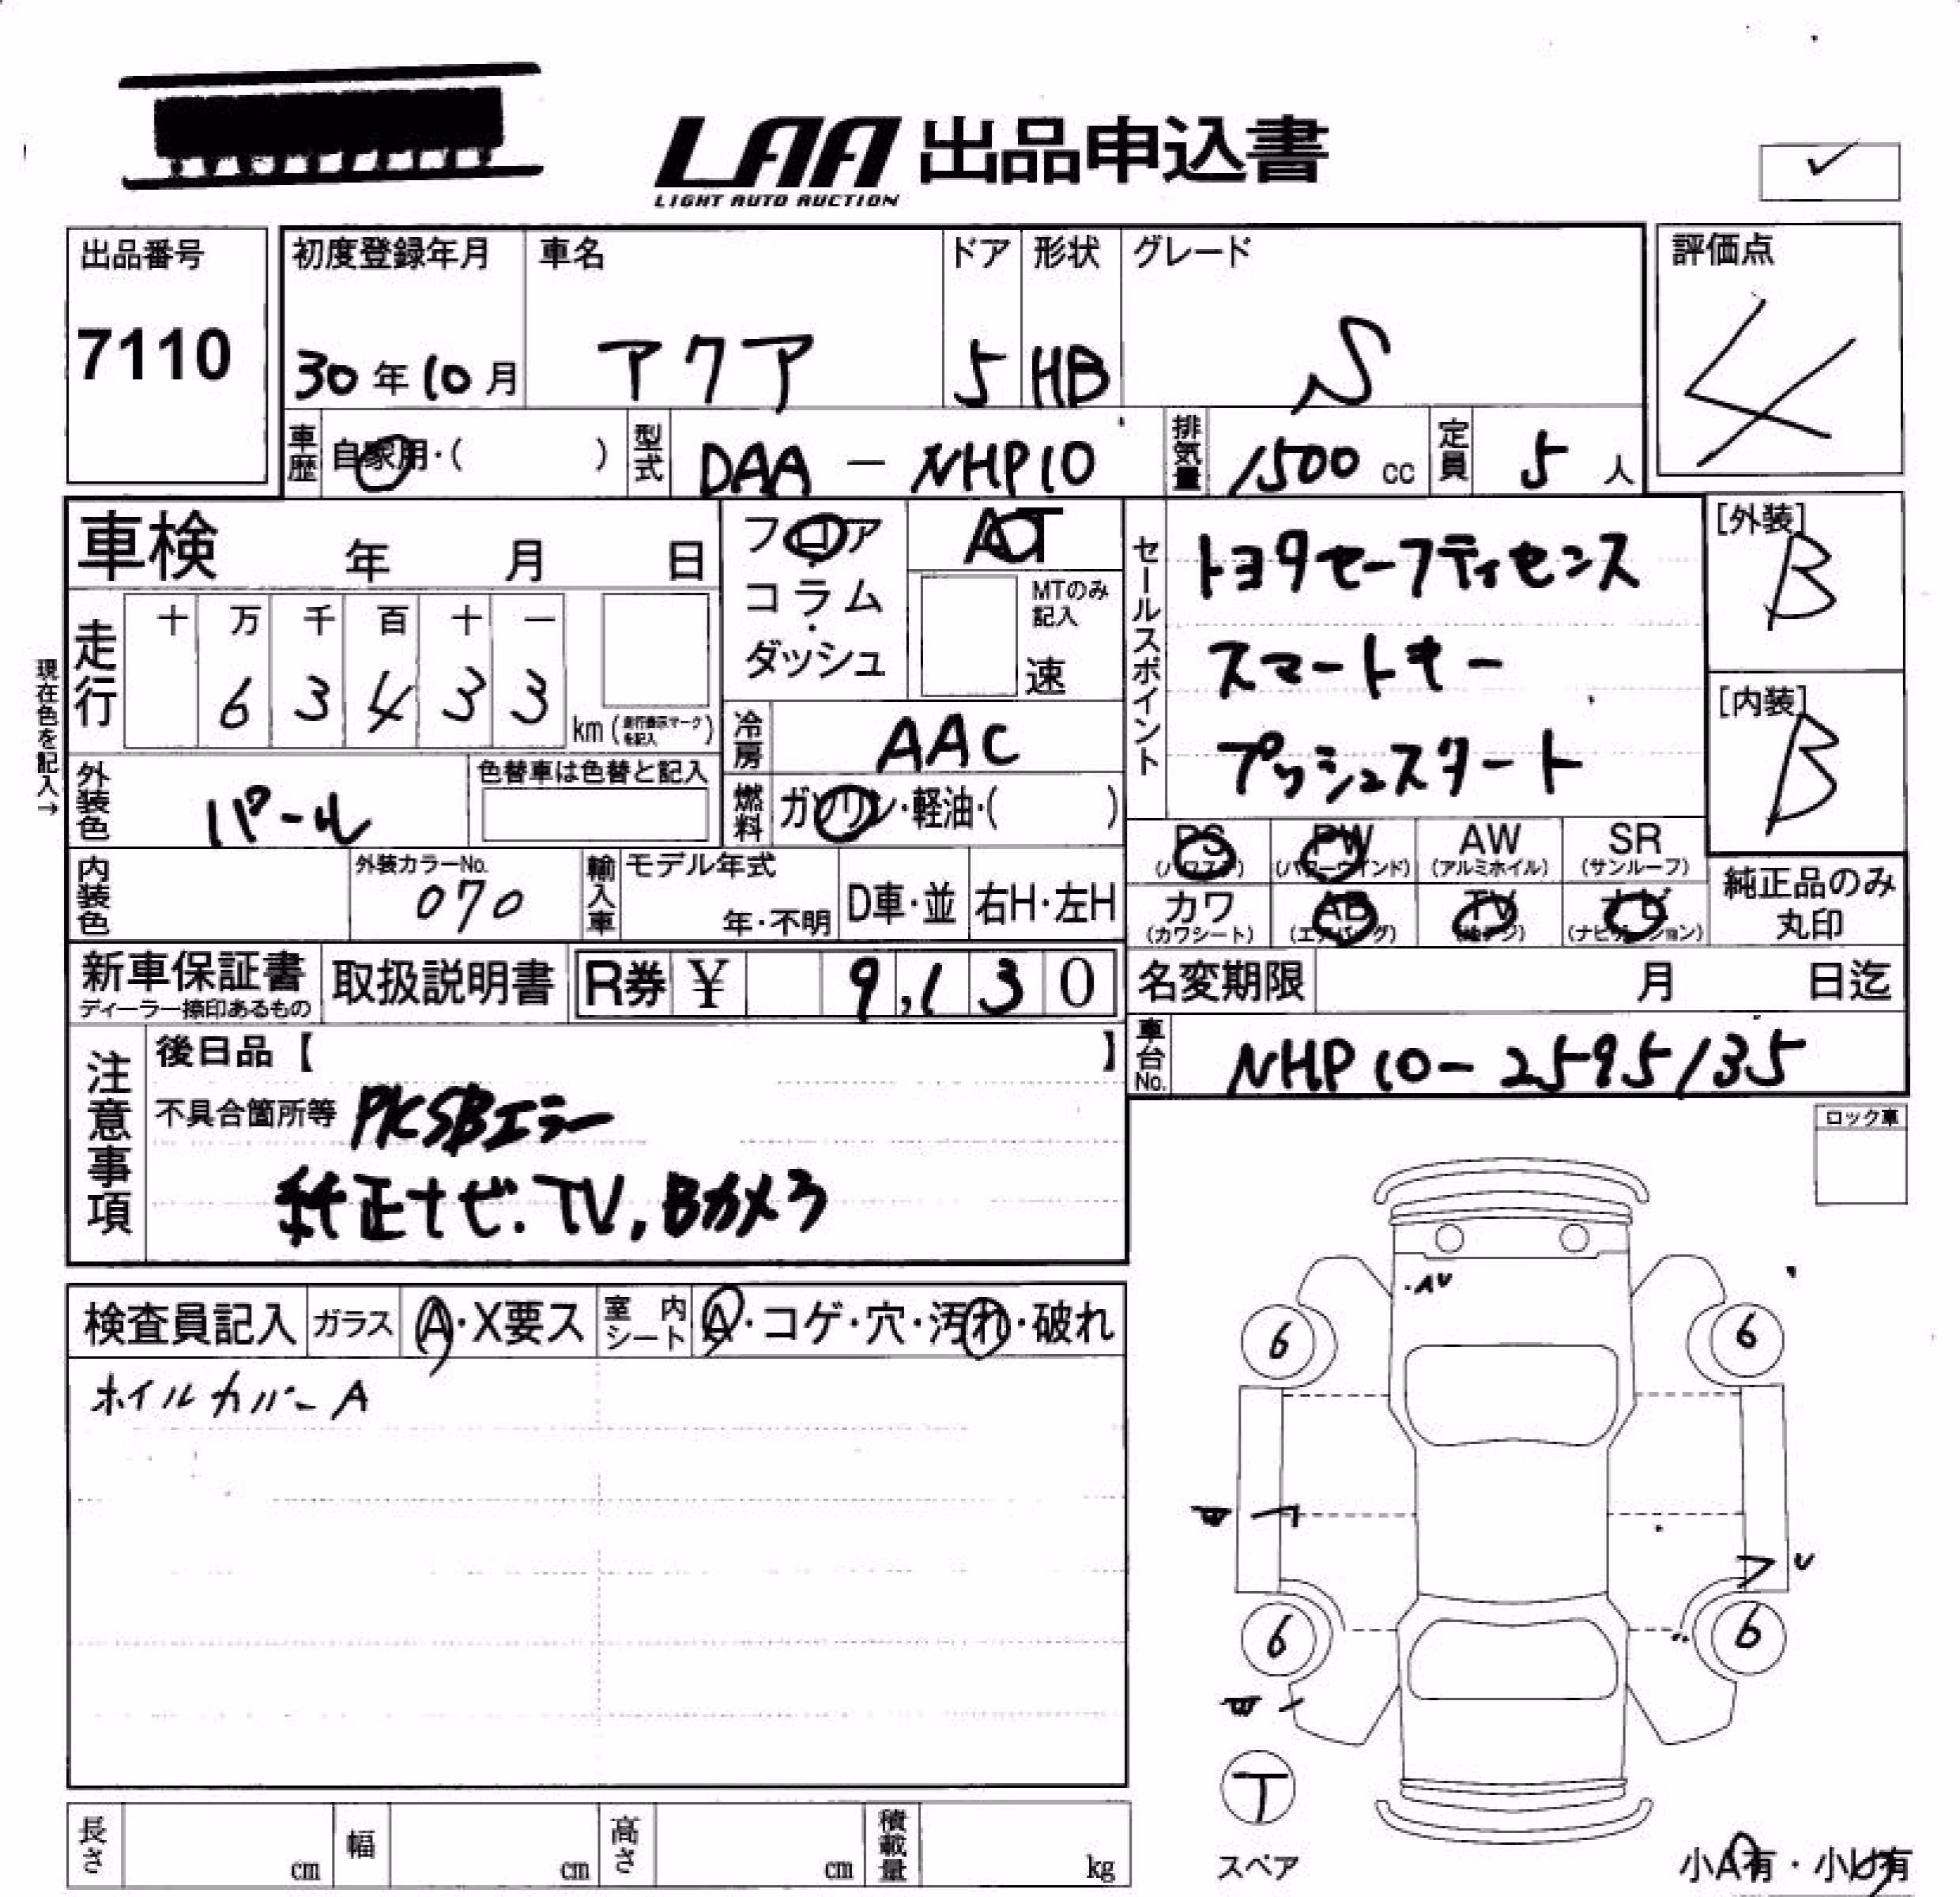 LAA 出品申込書
LIGHT AUTO AUCTION
✓
出品番号
7110
初度登録年月
30年10月
車名
アクア
ドア
5
形状
HB
グレード
S
評価点
4
車歴
自家用・( )
型式
DAA-NHP10
排気量
1500 cc
定員
5人
車検 年 月 日
フロア
コラム
ダッシュ
AT
MTのみ記入
速
セールスポイント
トヨタセーフティセンス
スマートキー
プッシュスタート
[外装]
B
[内装]
B
現在色を記入→
走行
十 万 千 百 十 一
6 3 4 3 3
km (走行表示マークを記入)
冷房
AAC
外装色
パール
色替車は色替と記入
燃料
ガソリン・軽油・( )
PS
(パワステ)
PW
(パワーウインド)
AW
(アルミホイル)
SR
(サンルーフ)
カワ
(カワシート)
AB
(エアバッグ)
TV
ナビ
(ナビゲーション)
純正品のみ
丸印
内装色
外装カラーNo.
070
輸入車
モデル年式
年・不明
D車・並
右H・左H
新車保証書
ディーラー捺印あるもの
取扱説明書
R券 ¥ 9,130
名変期限 月 日迄
車台No.
NHP10-2595135
注意事項
後日品【 】
不具合箇所等 PKSBエラー
純正ナビ.TV,Bカメラ
ロック車
検査員記入
ガラス
A・X要ス
室内シート
A・コゲ・穴・汚れ・破れ
ホイルカバーA
AU
6
6
U
6
6
T
スペア
長さ cm
幅 cm
高さ cm
積載量 kg
小A有・小U有